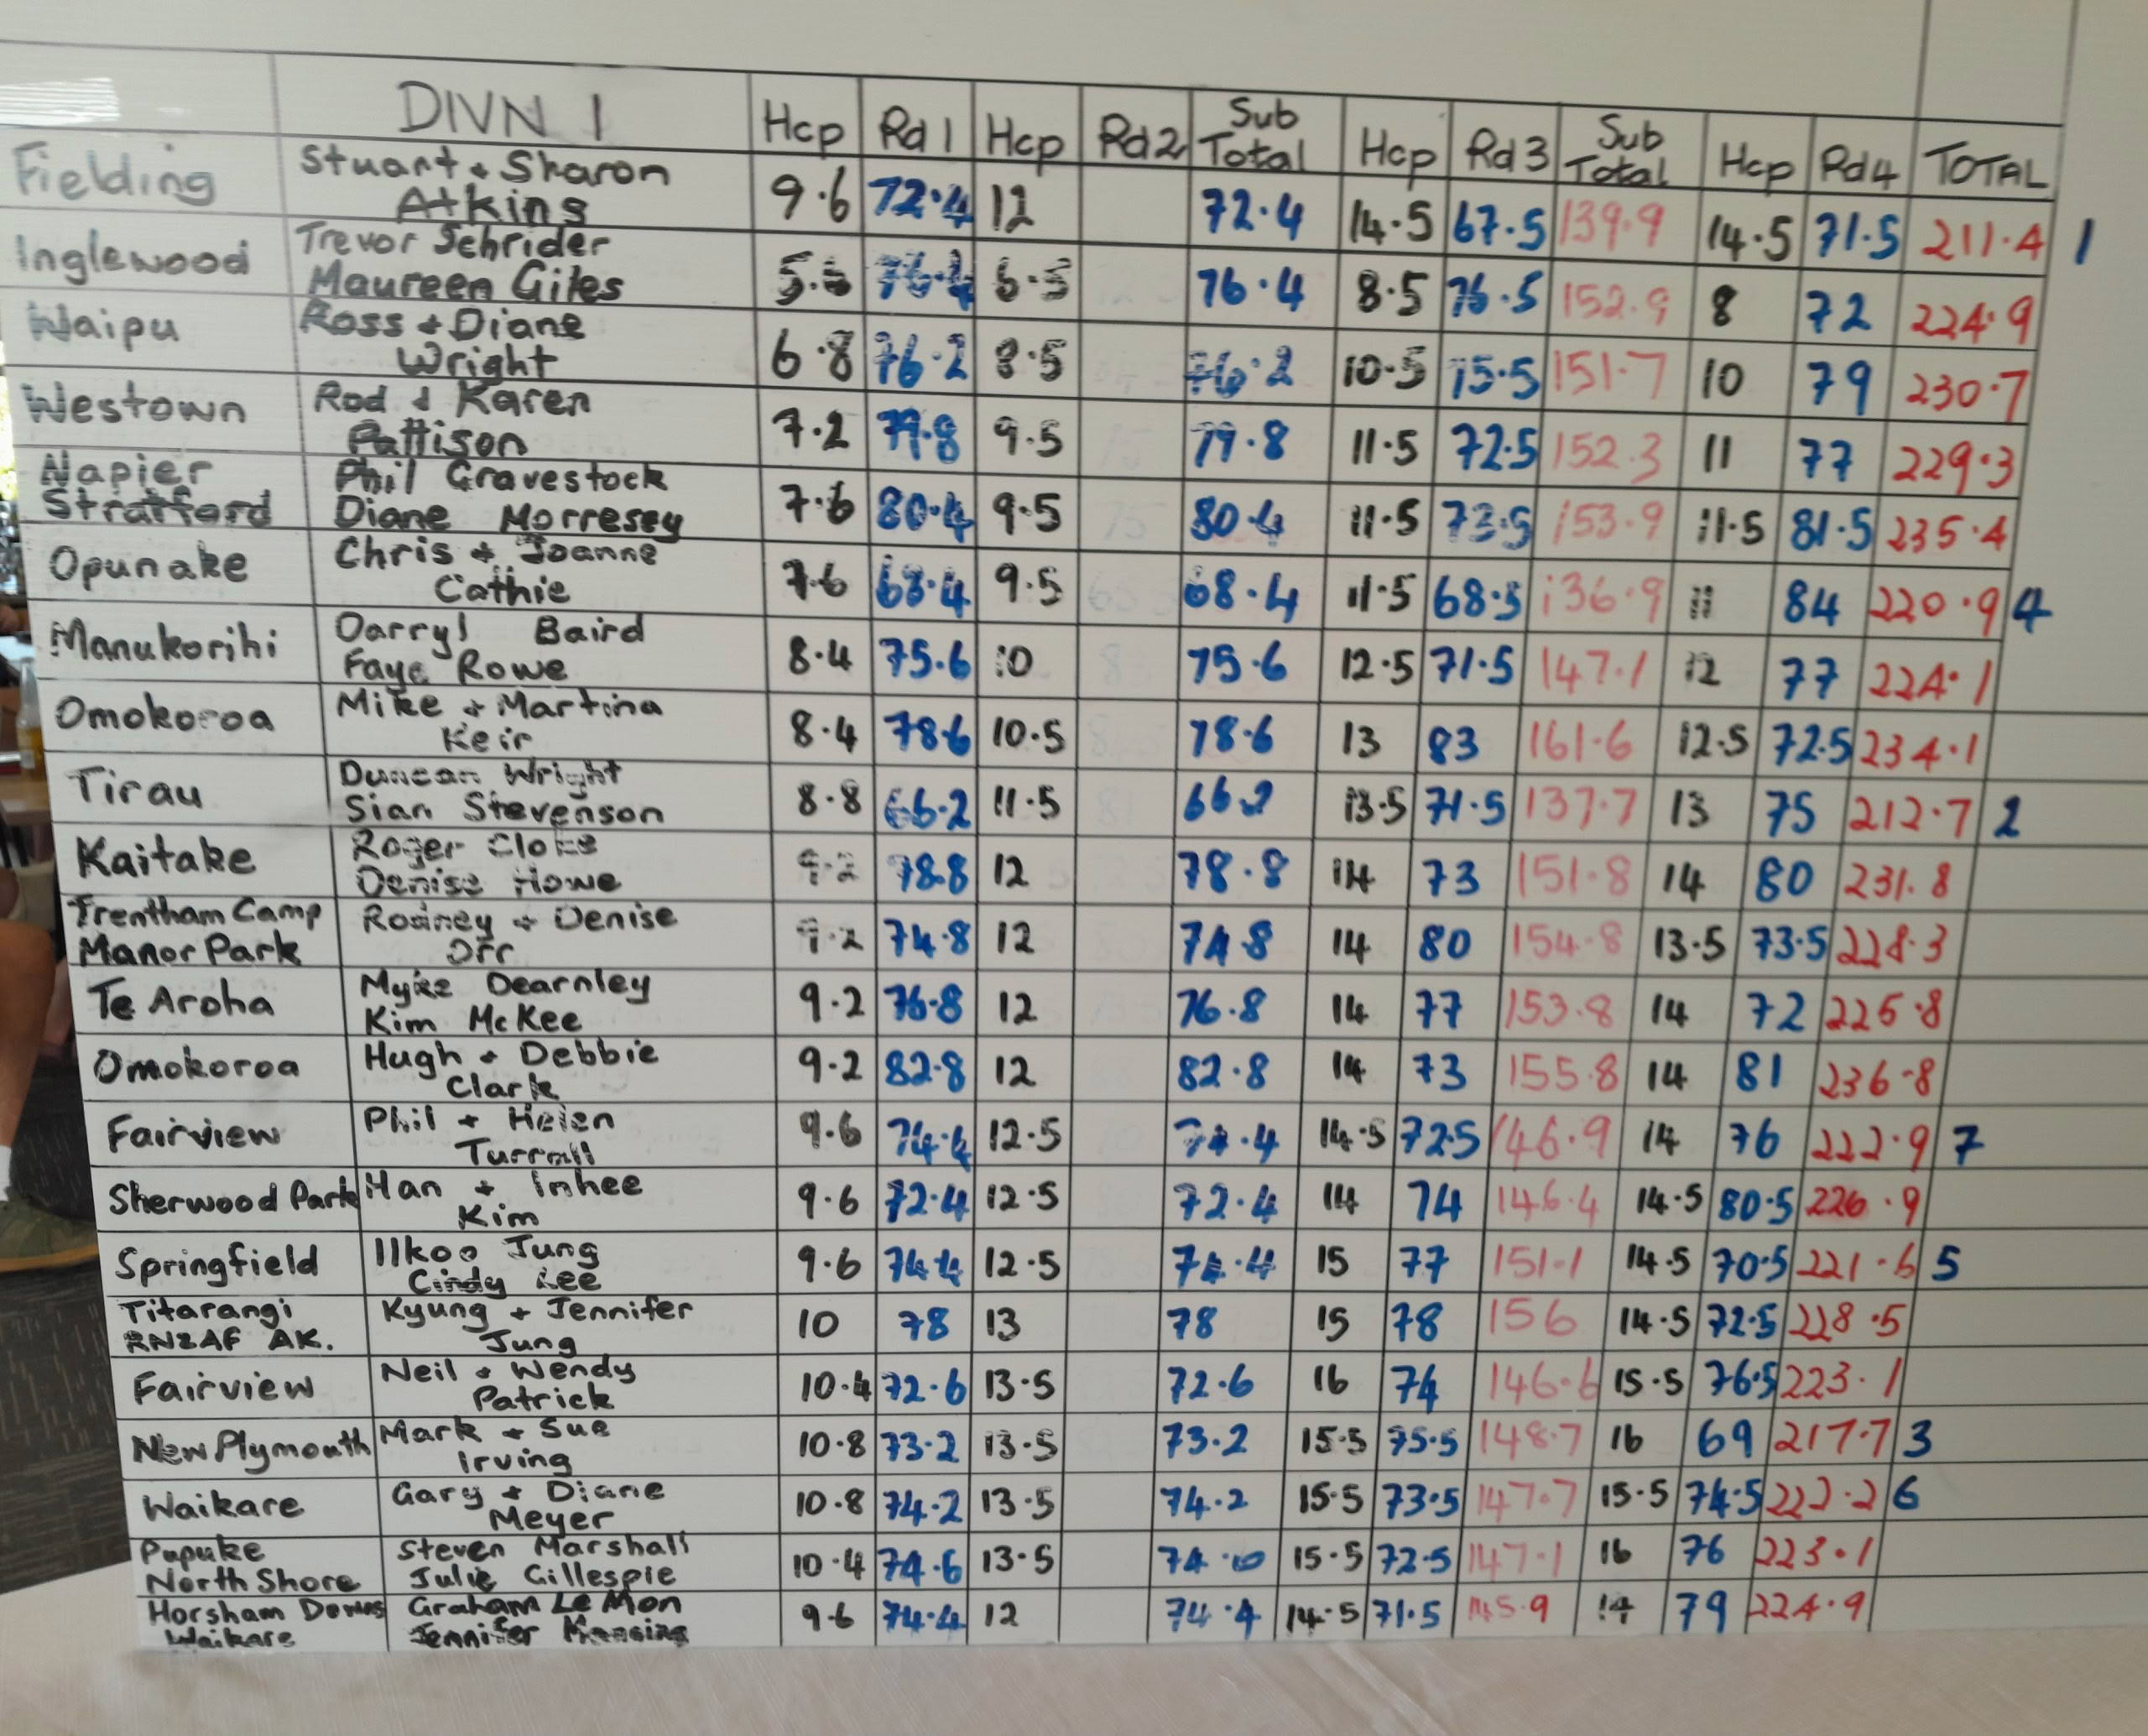 DIVN 1 Hcp Rd1 Hcp Rd2 Sub Total Hcp Rd3 Sub Total Hcp Rd4 TOTAL
Fielding Stuart + Sharon Atkins 9.6 72.4 12 72.4 14.5 67.5 139.9 14.5 71.5 211.4 1
Inglewood Trevor Schrider Maureen Giles 76.4 76.4 8.5 76.5 152.9 8 72 224.9
Waipu Ross + Diane Wright 6.8 76.2 8.5 76.2 10.5 75.5 151.7 10 79 230.7
Westown Rod & Karen Pattison 7.2 79.8 9.5 79.8 11.5 72.5 152.3 11 77 229.3
Napier Stratford Phil Gravestock Diane Morresey 7.6 80.4 9.5 80.4 11.5 73.5 153.9 11.5 81.5 235.4
Opunake Chris + Joanne Cathie 7.6 68.4 9.5 68.4 11.5 68.5 136.9 11 84 220.9 4
Manukorihi Darryl Baird Faye Rowe 8.4 75.6 10 75.6 12.5 71.5 147.1 12 77 224.1
Omokoroa Mike + Martina Keir 8.4 78.6 10.5 78.6 13 83 161.6 12.5 72.5 234.1
Tirau Duncan Wright Sian Stevenson 8.8 66.2 11.5 66.2 13.5 71.5 137.7 13 75 212.7 2
Kaitake Roger Cloke Denise Howe 9.2 78.8 12 78.8 14 73 151.8 14 80 231.8
Trentham Camp Manor Park Rodney + Denise Orr 9.2 74.8 12 74.8 14 80 154.8 13.5 73.5 228.3
Te Aroha Myke Dearnley Kim McKee 9.2 76.8 12 76.8 14 77 153.8 14 72 225.8
Omokoroa Hugh + Debbie Clark 9.2 82.8 12 82.8 14 73 155.8 14 81 236.8
Fairview Phil + Helen Turrall 9.6 74.4 12.5 74.4 14.5 72.5 146.9 14 76 222.9 7
Sherwood Park Han + Inhee Kim 9.6 72.4 12.5 72.4 14 74 146.4 14.5 80.5 226.9
Springfield Ilkoo Jung Cindy Lee 9.6 74.4 12.5 74.4 15 77 151.1 14.5 70.5 221.6 5
Titarangi RNZAF AK. Kyung + Jennifer Jung 10 78 13 78 15 78 156 14.5 72.5 228.5
Fairview Neil + Wendy Patrick 10.4 72.6 13.5 72.6 16 74 146.6 15.5 76.5 223.1
New Plymouth Mark + Sue Irving 10.8 73.2 13.5 73.2 15.5 75.5 148.7 16 69 217.7 3
Waikare Gary + Diane Meyer 10.8 74.2 13.5 74.2 15.5 73.5 147.7 15.5 74.5 222.2 6
Pupuke North Shore Steven Marshall Julie Gillespie 10.4 74.6 13.5 74.6 15.5 72.5 147.1 16 76 223.1
Horsham Downs Waikare Graham Le Mon Jennifer 9.6 74.4 12 74.4 14.5 71.5 145.9 14 79 224.9